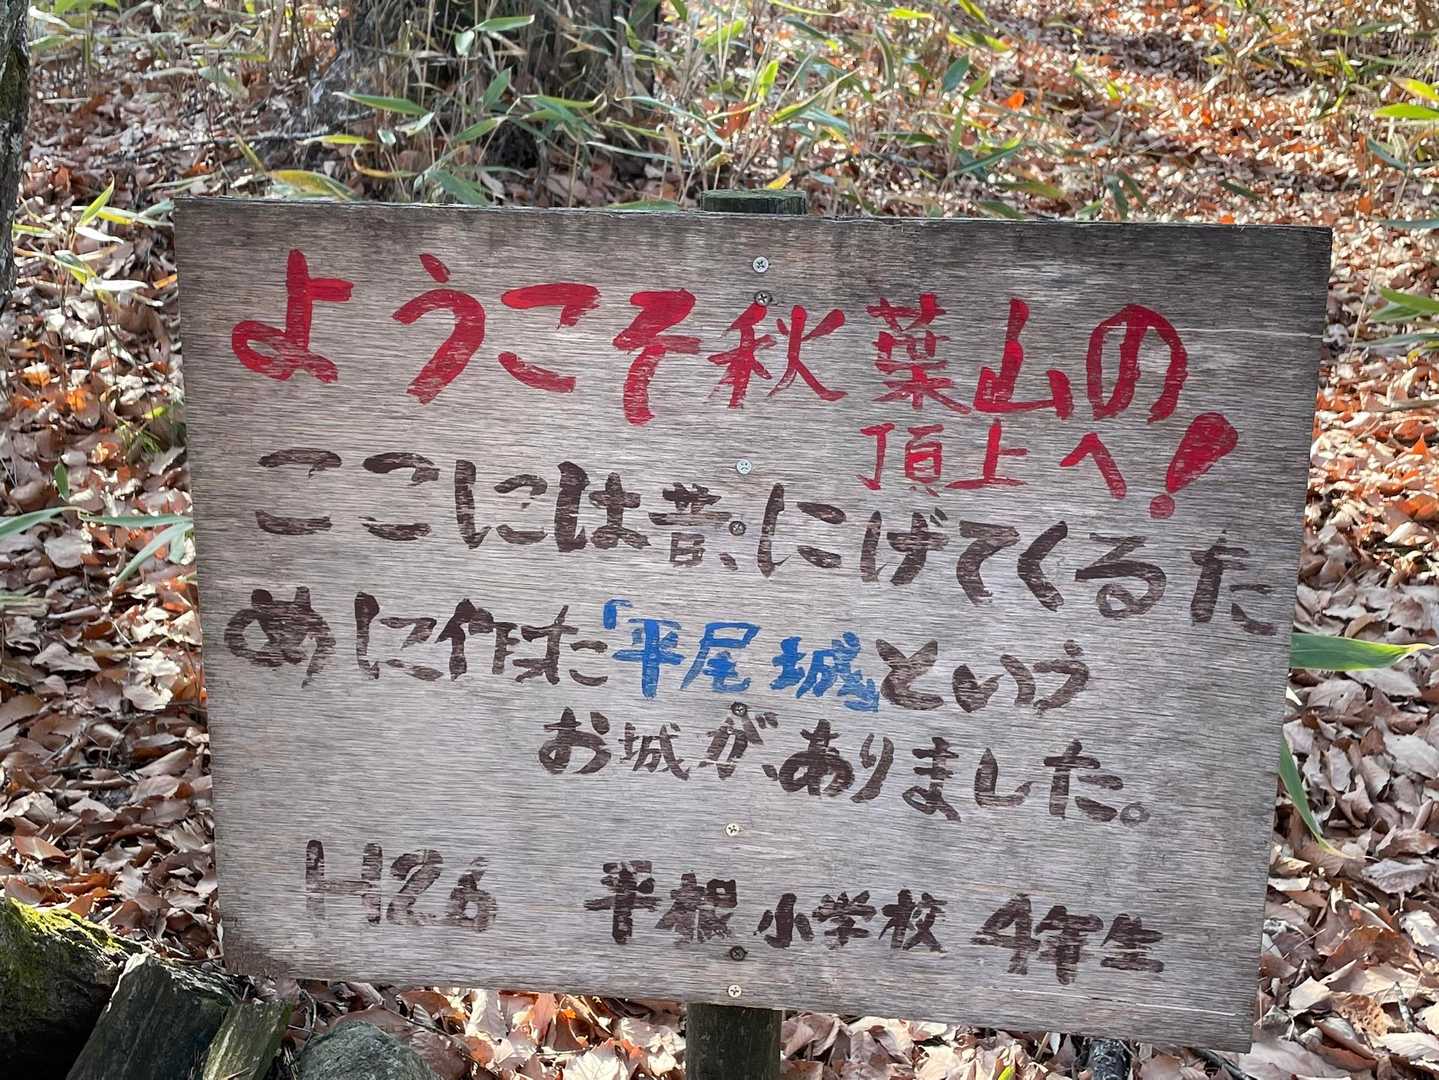 ようこそ秋葉山の
頂上へ!
ここには昔、にげてくるた
めに作った「平尾城」という
お城が、ありました。
H26 平根小学校 4年生